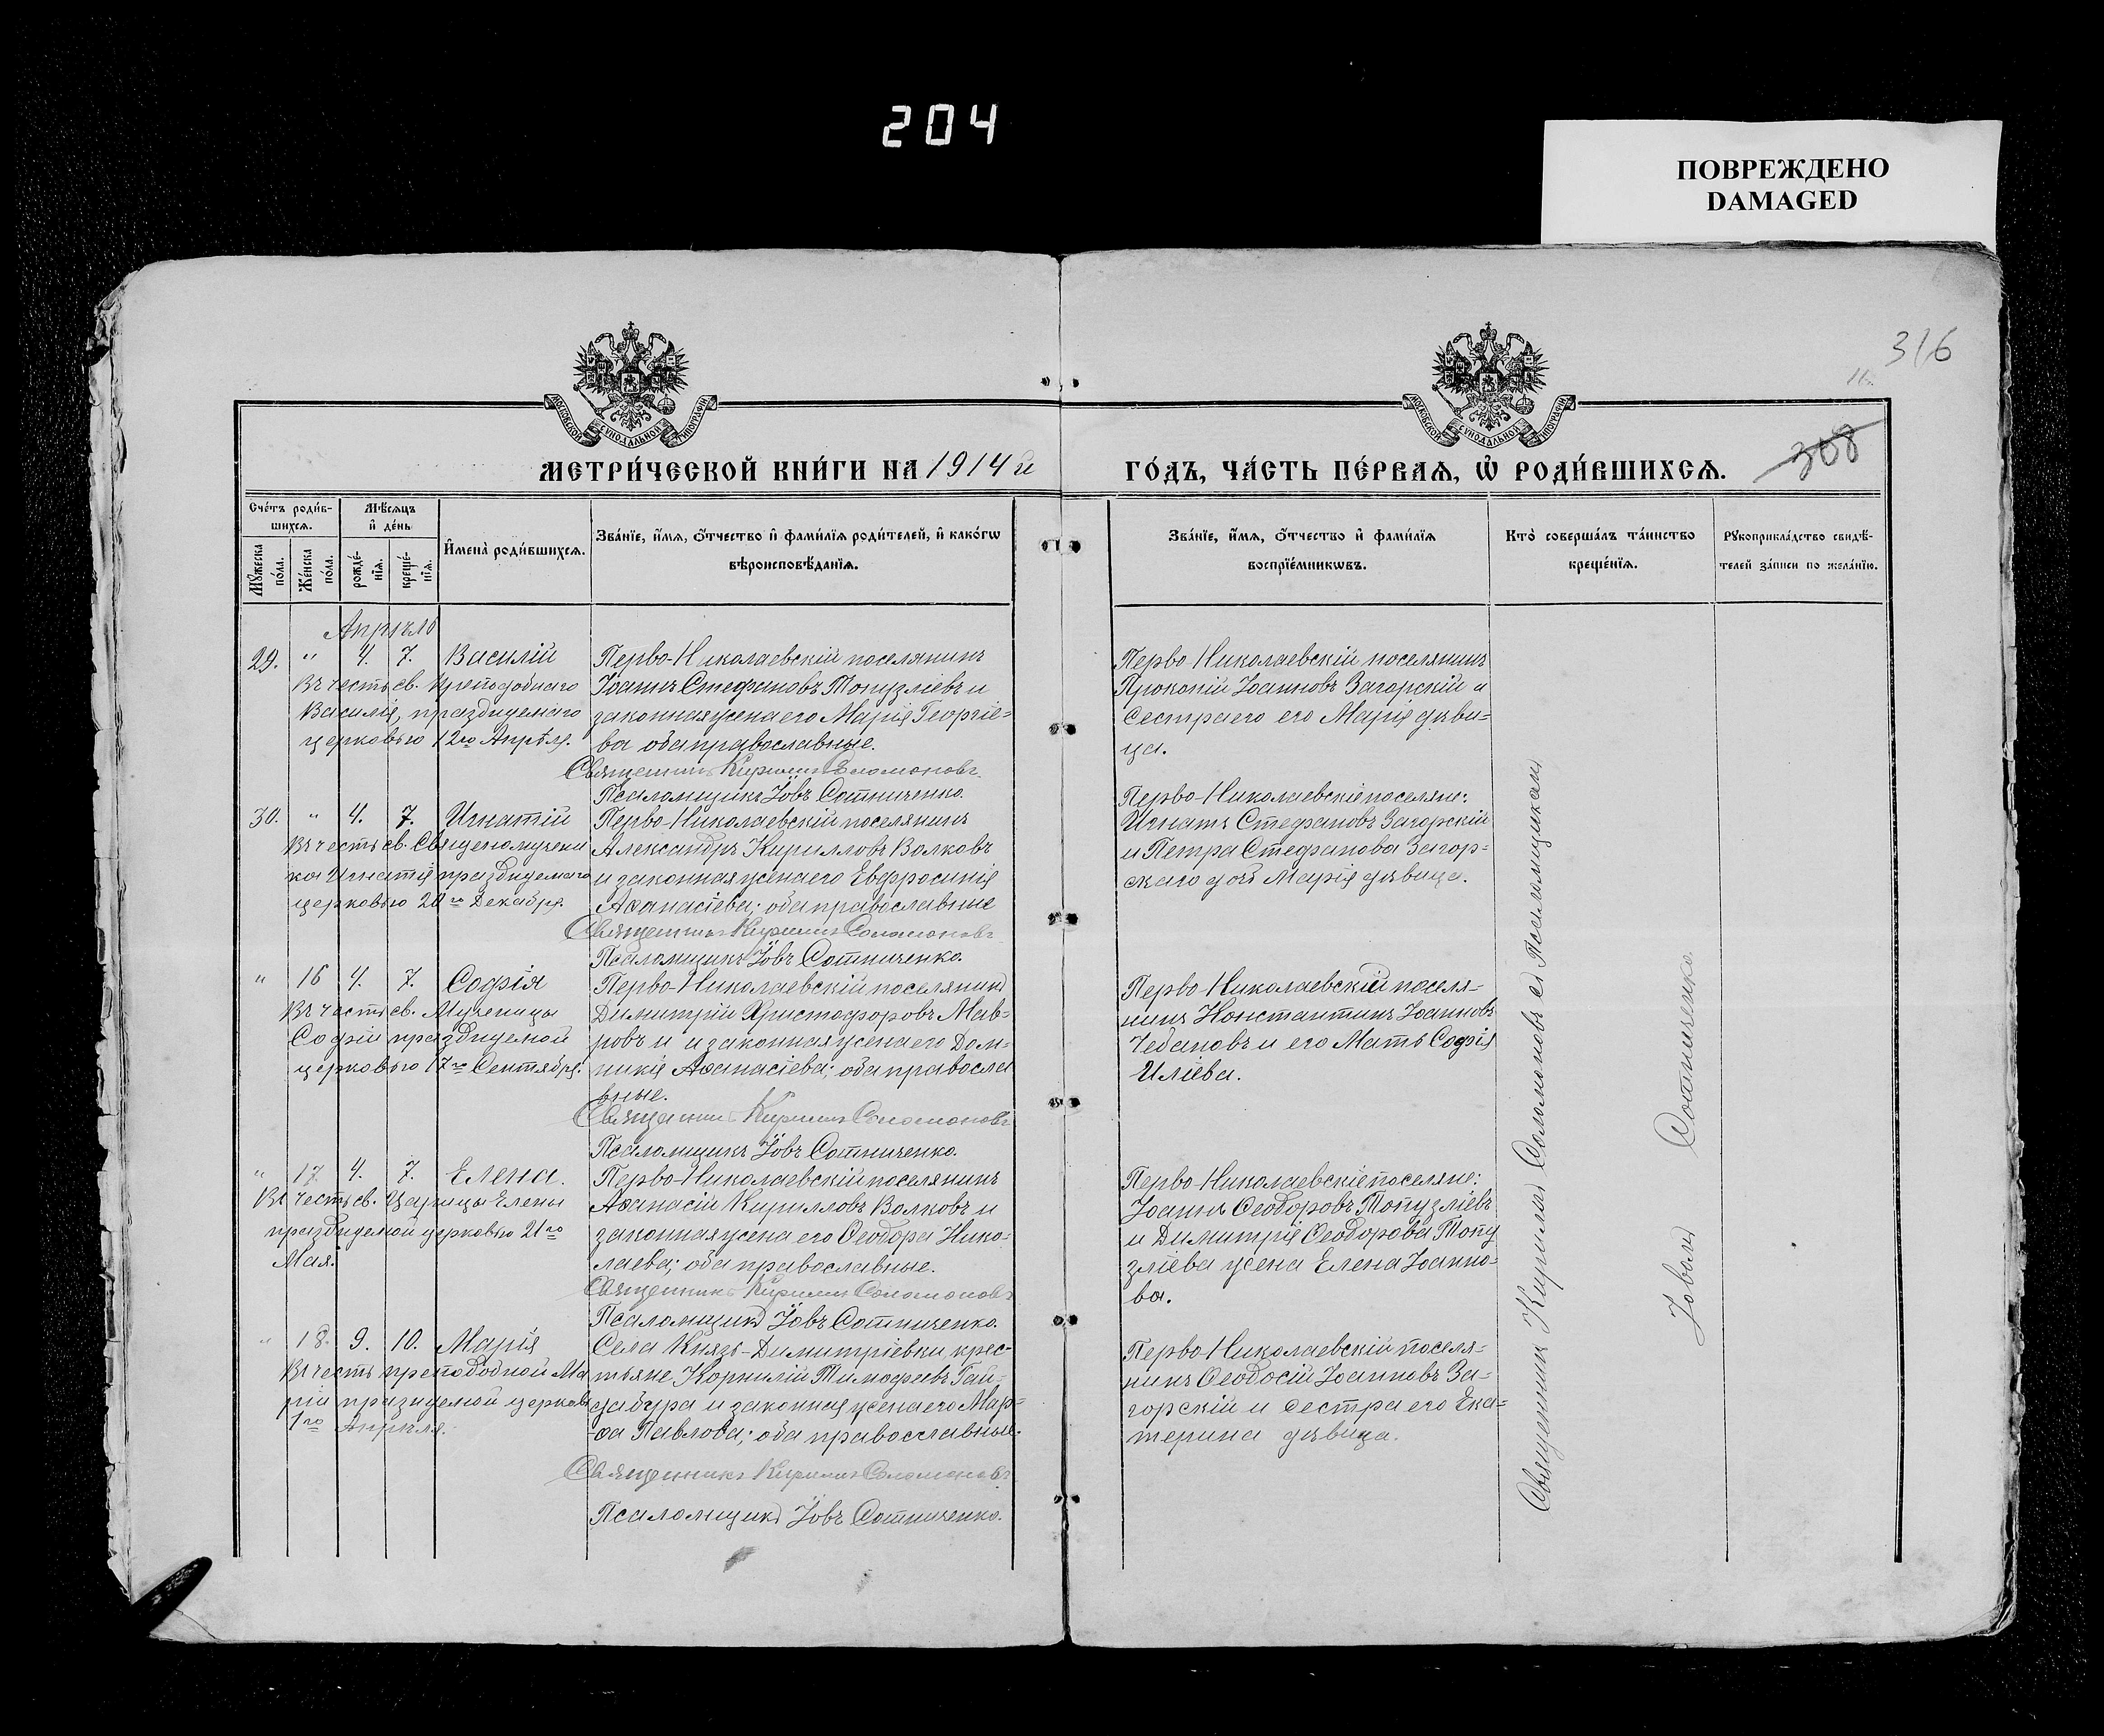 204
ПОВРЕЖДЕНО
DAMAGED
316
308
МОСКОВСКОЙ СѴНОДАЛЬНОЙ ТИПОГРАФІИ
МОСКОВСКОЙ СѴНОДАЛЬНОЙ ТИПОГРАФІИ
МЕТРИ́ЧЕСКОЙ КНИ́ГИ НА 1914 й
ГО́ДЪ, ЧА́СТЬ ПЕ́РВАѦ, Ѽ РОДИ́ВШИХСѦ.
Сче́тъ роди́в-
шихся.
Мꙋ́жеска по́ла.
Же́нска по́ла.
Мѣ́сяцъ
и҆ де́нь
рожде́-нїя.
креще́-нїя.
И҆мена̀ роди́вшихся.
Зва́нїе, и҆́мя, ѻ҆́тчество и҆ фами́лїя роди́телей, и҆ како́гѡ
вѣроисповѣ́данїя.
Зва́нїе, и҆́мя, ѻ҆́тчество и҆ фами́лїя
воспрїе́мникѡвъ.
Кто̀ соверша́лъ та́инство
креще́нїя.
Рꙋкоприкла́дство свидѣ́-
телей за́писи по жела́нїю.
Апрѣль
29. " 4. 7. Василій
Въ честь св. Преподобнаго
Василія, празднуемаго
церковью 12го Апрѣля.
Перво-Николаевскій поселянинъ
Іоаннъ Стефановъ Топузліевъ и
законная жена его Марія Георгіе-
ва оба православные.
Священникъ Кириллъ Соломоновъ
Псаломщикъ Іовъ Сотниченко.
Перво Николаевскій поселянинъ
Прокопій Іоанновъ Загорскій и
сестра его его Марія дѣви-
ца.
30. " 4. 7. Игнатій
Въ честь св. Священомучени
ка Игнатія празднуемаго
церковью 20го Декабря.
Перво-Николаевскій поселянинъ
Александръ Кирилловъ Волковъ
и законная жена его Евфросинія
Аѳанасіева; оба православные
Священникъ Кириллъ Соломоновъ
Псаломщикъ Іовъ Сотниченко.
Перво-Николаевскіе поселяне:
Игнатъ Стефановъ Загорскій
и Петра Стефанова Загор-
скаго дочь Марія дѣвица.
" 16 4. 7. Софія
Въ честь св. Мученицы
Софіи празднуемой
церковью 17го Сентября.
Перво-Николаевскій поселянинъ
Димитрій Христофоровъ Мав-
ровъ и и законная жена его Дом-
никія Аѳанасіева; оба правосла
вные.
Священникъ Кириллъ Соломоновъ
Псаломщикъ Іовъ Сотниченко.
Перво Николаевскій поселя-
нинъ Константинъ Іоанновъ
Чебановъ и его Мать Софія
Иліева.
" 17. 4. 7. Елена.
Въ честь св. Царицы Елены
празднуемой церковью 21го
Мая.
Перво-Николаевскій поселянинъ
Аѳанасій Кирилловъ Волковъ и
законная жена его Ѳеодора Нико-
лаева; оба православные.
Священникъ Кириллъ Соломоновъ
Псаломщикъ Іовъ Сотниченко.
Перво-Николаевскіе поселяне:
Іоаннъ Ѳеодоровъ Топузліевъ
и Димитрія Ѳеодорова Топу
зліева жена Елена Іоанно-
ва.
" 18. 9. 10. Марія
Въ честь преподобной Ма
ріи празнуемой церковью
1го Апрѣля.
Села Князь-Димитріевки крес-
тьяне Корнилій Тимофеевъ Гай-
дабура и законная жена его Мар-
ѳа Павлова; оба православные.
Священникъ Кириллъ Соломоновъ
Псаломщикъ Іовъ Сотниченко.
Перво-Николаевскій поселя-
нинъ Ѳеодосій Іоанновъ За-
горскій и сестра его Ека-
терина дѣвица.
Священникъ Кириллъ Соломоновъ съ Псаломщикомъ
Іовомъ Сотниченко.